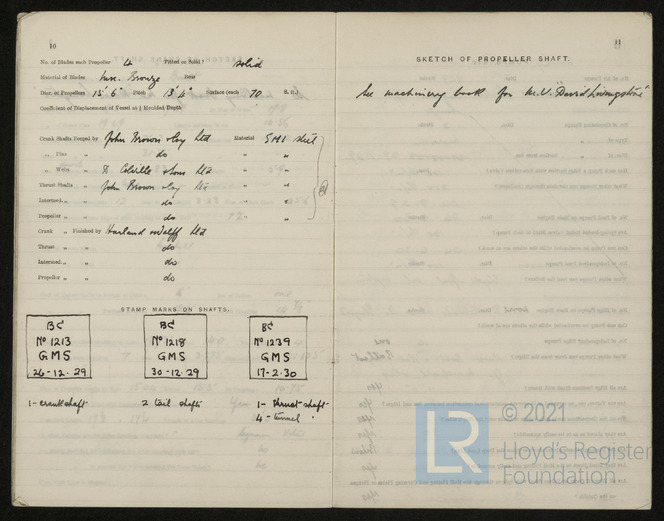 10
No. of Blades each Propeller 4 Fitted or Solid? solid
Material of Blades Bronze Boss
Diar. of Propellers 15' 6" Pitch 13' 4" Surface (each 70 S. ft.)
Coefficient of Displacement of Vessel at ½ Moulded Depth
Crank Shafts Forged by John Brown & Coy Ltd Material SMI steel
„ Pins „ do „ „
„ Webs „ D Colville & Sons Ltd „ „
Thrust Shafts „ John Brown & Coy Ltd „ „
Intermed. „ „ do „ „
Propeller „ „ do „ „
Crank „ Finished by Harland & Wolff Ltd
Thrust „ „ do
Intermed. „ „ do
Propeller „ „ do
STAMP MARKS ON SHAFTS.
BS
No 1213
GMS
26-12-29
BS
No 1218
GMS
30-12-29
BS
No 1239
GMS
17-2-30
1- crankshaft
2 tail shafts
1- thrust-shaft
4- tunnel "
11
SKETCH OF PROPELLER SHAFT.
See machinery book for M.V. "David Livingstone"
LR
© 2021
Lloyd's Register
Foundation